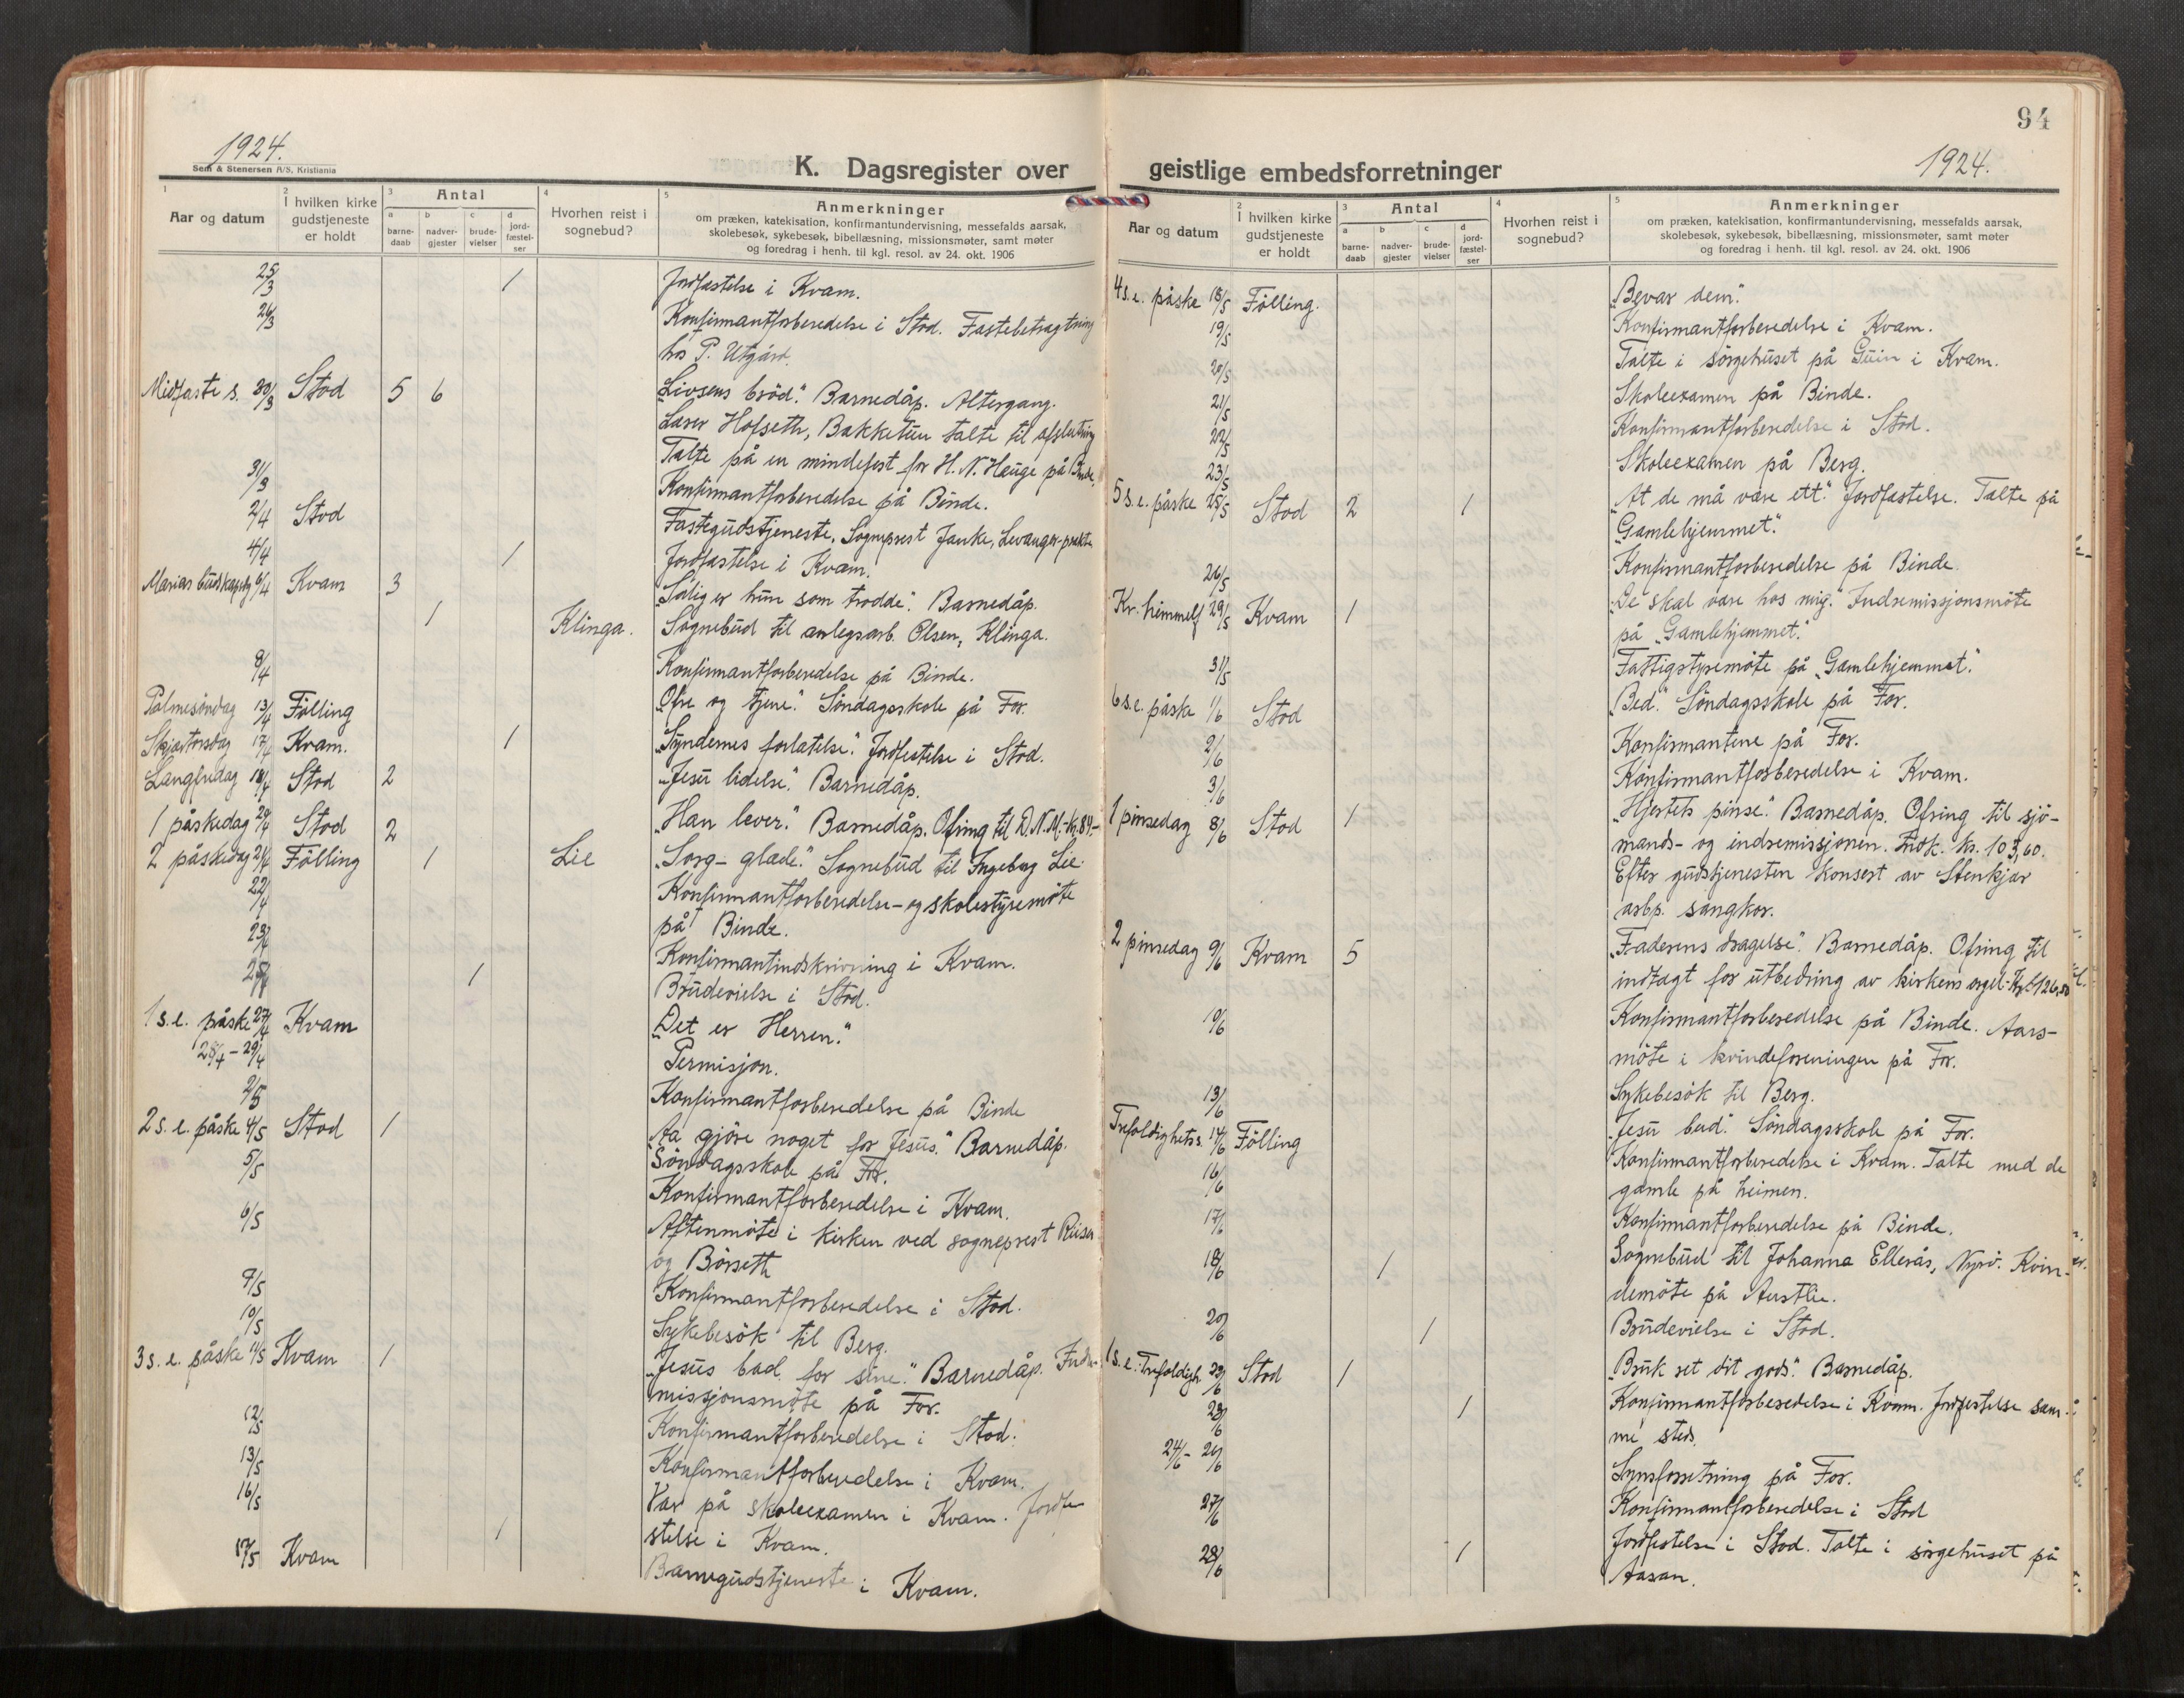 1924.
Sem & Stenersen A/S, Kristiania
K. Dagsregister over
1
Aar og datum
2
I hvilken kirke
gudstjeneste
er holdt
3
Antal
a
barne-
daab
b
nadver-
gjester
c
brude-
vielser
d
jord-
fæstel-
ser
4
Hvorhen reist i
sognebud?
5
Anmerkninger
om præken, katekisation, konfirmantundervisning, messefalds aarsak,
skolebesøk, sykebesøk, bibellæsning, missionsmøter, samt møter
og foredrag i henh. til kgl. resol. av 24. okt. 1906
25/3 1 Jordfæstelse i Kvam.
26/3 Konfirmantforberedelse i Stod. Fastebetragtning
hos P. Utgård.
Midfaste s. 30/3 Stod 5 6 „Livsens bröd." Barnedåp. Altergang.
Lærer Hofseth, Bakketun talte til afslutning
Talte på en mindefest for H. N. Hauge på Binde.
31/3 Konfirmantforberedelse på Binde.
2/4 Stod Fastegudstjeneste, Sogneprest Janke, Levanger-prækte
4/4 1 Jordfæstelse i Kvam.
Marias budskapsdg 6/4 Kvam 3 „Salig er hun som trodde". Barnedåp.
1 Klinga. Sognebud til anlegsarb. Olsen, Klinga.
8/4 Konfirmantforberedelse på Binde.
Palmesöndag 13/4 Fölling „Ofre og tjene." Söndagsskole på For.
Skjærtorsdag 17/4 Kvam. 1 „Syndernes forlatelse". Jordfestelse i Stod.
Langfredag 18/4 Stod 2 „Jesu lidelse." Barnedåp.
1 påskedag 20/4 Stod 2 „Han lever." Barnedåp. Ofring til D.N.M.-kr. 84.-
2 påskedag 21/4 Fölling 1 Lie „Sorg - glæde." Sognebud til Ingeborg Lie.
22/4 Konfirmantforberedelse - og skolestyremöte
på Binde.
23/4 Konfirmantindskrivning i Kvam.
25/4 1 Brudevielse i Stod.
1 s. e. påske 27/4 Kvam „Det er Herren."
28/4 - 29/4 Permisjon.
2/5 Konfirmantforberedelse på Binde
2 s. e. påske 4/5 Stod 1 „Aa gjöre noget for Jesus." Barnedåp.
Söndagsskole på For.
5/5 Konfirmantforberedelse i Kvam.
6/5 Aftenmöte i kirken ved sogneprest Riiser
og Börseth
7/5 Konfirmantforberedelse i Stod.
10/5 Sykebesök til Berg.
3 s. e. påske 11/5 Kvam 1 „Jesus bad for sine." Barnedåp. Indre-
missjonsmöte på For.
12/5 Konfirmantforberedelse i Stod.
13/5 Konfirmantforberedelse i Kvam.
16/5 1 Var på skoleexamen i Kvam. Jordfe
stelse i Kvam.
17/5 Kvam Barnegudstjeneste i Kvam.
94
geistlige embedsforretninger
1924.
Aar og datum
2
I hvilken kirke
gudstjeneste
er holdt
3
Antal
a
barne-
daab
b
nadver-
gjester
c
brude-
vielser
d
jord-
fæstel-
ser
4
Hvorhen reist i
sognebud?
5
Anmerkninger
om præken, katekisation, konfirmantundervisning, messefalds aarsak,
skolebesøk, sykebesøk, bibellæsning, missionsmøter, samt møter
og foredrag i henh. til kgl. resol. av 24. okt. 1906
4 s. e. påske 18/5 Fölling. „Bevar dem."
19/5 Konfirmantforberedelse i Kvam.
20/5 Talte i sörgehuset på Guin i Kvam.
21/5 Skoleexamen på Binde.
22/5 Konfirmantforberedelse i Stod.
23/5 Skoleexamen på Berg.
5 s. e. påske 25/5 Stod 2 1 „At de må være ett." Jordfæstelse. Talte på
„Gamlehjemmet".
26/5 Konfirmantforberedelse på Binde
Kr. himmelf 29/5 Kvam 1 „De skal være hos mig." Indremissjonsmöte
på „Gamlehjemmet."
31/5 Fattigstyremöte på „Gamlehjemmet".
6 s. e. påske 1/6 Stod „Bed." Söndagsskole på For.
2/6 Konfirmantene på For.
3/6 Konfirmantforberedelse i Kvam.
1 pinsedag 8/6 Stod 1 „Hjertets pinse." Barnedåp. Ofring til sjö-
mands- og indremissjonen. Indk. kr. 103,60.
Efter gudstjenesten konsert av Stenkjær
arbp. sangkor.
2 pinsedag 9/6 Kvam 5 „Faderens dragelse". Barnedåp. Ofring til
indtægt for utbedring av kirkens orgel-
10/6 Konfirmantforberedelse på Binde. Aars-
möte i kvindeforeningen på For.
13/6 Sykebesök til Berg.
Trefoldighets. Fölling „Jesu bud." Söndagsskole på For.
16/6 Konfirmantforberedelse i Kvam. Talte med de
gamle på heimen.
17/6 Konfirmantforberedelse på Binde.
18/6 1 Sognebud til Johanna Ellerås, Kvin-
demöte på Austlie.
20/6 1 Brudevielse i Stod.
1 s. e. Trefoldigh. Stod 1 „Bruk ret dit gods." Barnedåp.
1 Konfirmantforberedelse i Kvam. Jordfestelse sam-
me sted.
24/6 - Synsforretning på For.
27/6 Konfirmantforberedelse i Stod
28/6 1 Jordfestelse i Stod. Talte i sörgehuset på
Aasan.